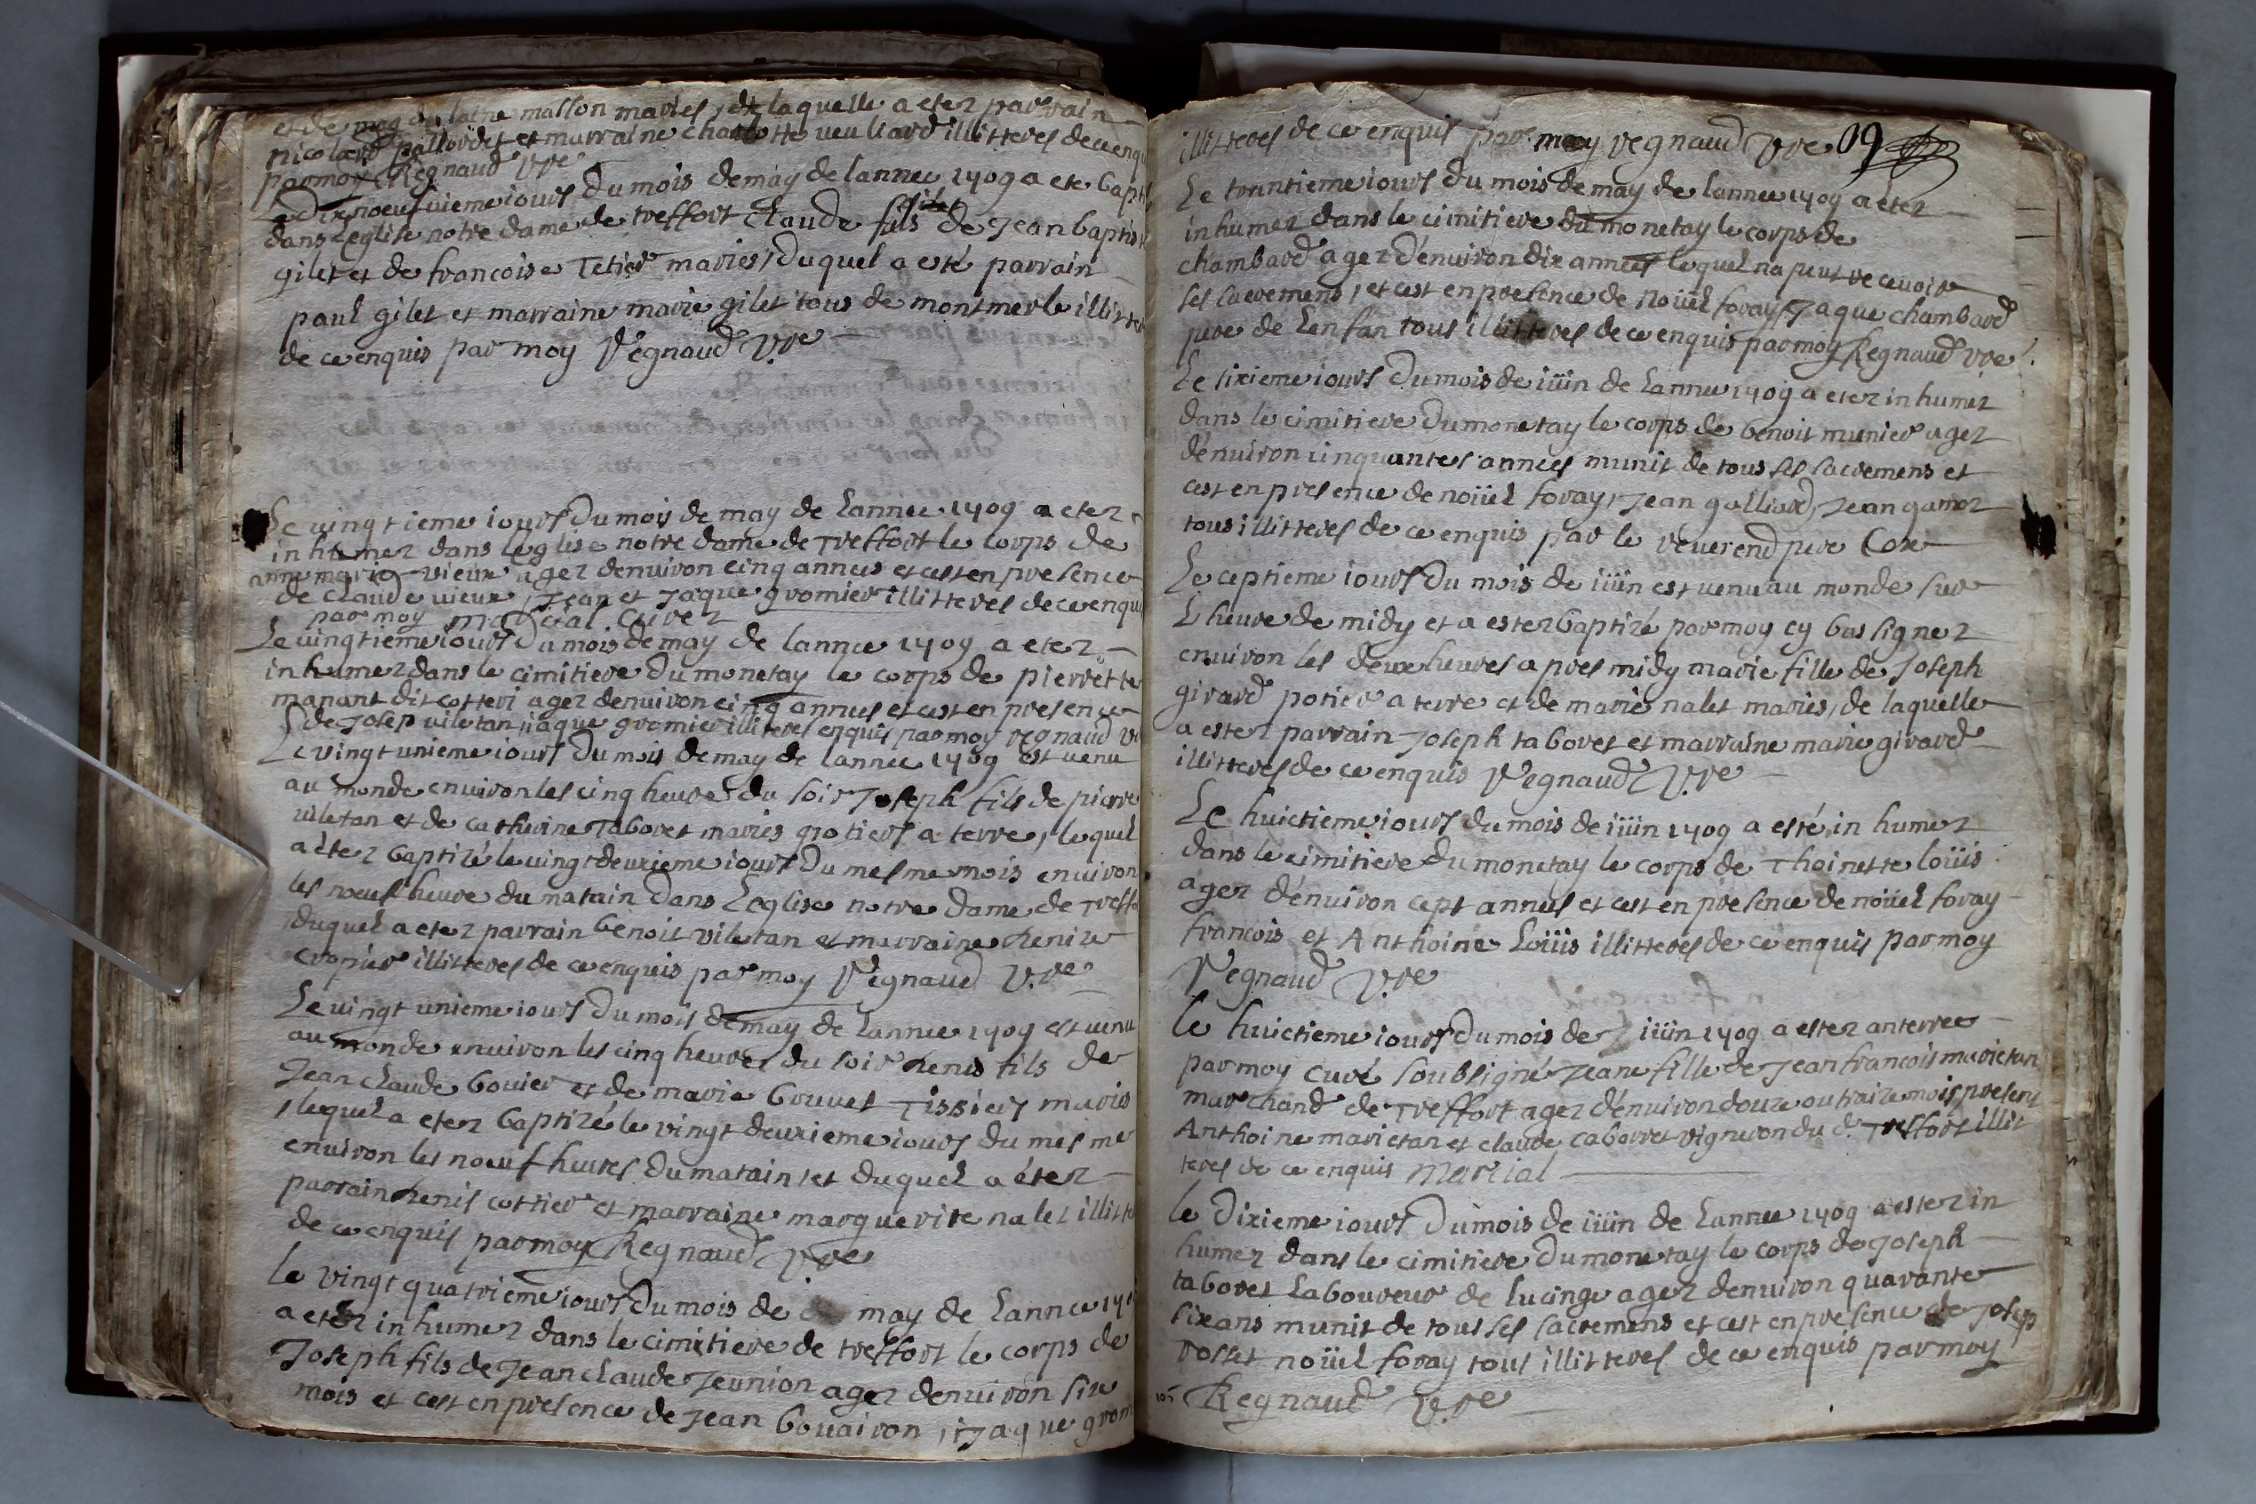 et de magdelaine masson mariés, de laquelle a eter parrain
nicolard pallordet et marraine charlotte veuliard illitteres de ce enqu
par moy Regnaud V.re
Le dix noeufvieme iours du mois de may de lannee 1709 a ete bapti
dans leglise notre dame de treffort Claude fils de Jean baptist
gilet et de francoise Tetier mariés, duquel a esté parrain
paul gilet et marraine marie gilet tous de montmerle illitter
de ce enquis par moy Regnaud V.re
Le vingtieme iours du mois de may de lannee 1709 a eter
inhumer dans leglise notre dame de Treffort le corps de
anne marie vieux ager denuiron cinq annees et cest en presence
de Claude vieux, Jean et Jaque gromier illitteres de ce enqu
par moy martial Curez
Le vingtieme iours du mois de may de lannee 1709 a eter
inhumer dans le cimitiere du monetay le corps de pierrette
manant dit cotteri ager denuiron cinq annees et cest en presence
de Josep viletan, iaque gromier illiteres enquis par moy regnaud v
Le vingt unieme iours du mois de may de lannee 1709 est venu
au monde enuiron les cinq heures du soir Joseph fils de pierre
viletan et de catherine Taboret mariés potiers a terre, lequel
a éter baptizé le vingt deuxieme iours du mesme mois enuiron
les noeuf heure du matain dans Leglise notre dame de Treffo
duquel a eter parrain benoit viletan et marraine henize
cropier illitteres de ce enquis par moy Regnaud V.re
Le vingt unieme iours du mois de may de lannee 1709 est venu
au monde enuiron les cinq heures du soir henis fils de
Jean claude bouier et de marie brunet Tissiers mariés
, lequel a eter baptizé le vingt deuxieme iours du mesme
enuiron les noeuf heures du matain et duquel a éter
parrain henis cottier et marraine marguerite nalet illitte
de ce enquis par moy Regnaud V.re
le vingt quatrieme iours du mois de may de Lannee 17
a eter inhumer dans le cimitiere de treffort le corps de
Joseph fils de Jean claude Jeunion ager denuiron six
mois et cest en presence de Jean bouairon, iaque grom
illitteres de ce enquis par moy regnaud V.re 09
Le tranntieme iours du mois de may de lannee 1709 a eter
inhumer dans le cimitiere du monetay le corps de
chambard ager dénuiron dix annees lequel na peut recevoir
ses sacremens, et cest en presence de noüel foray, Jaque chambard
pere de Lenfan tous illitteres de ce enquis par moy Regnaud vre
Le sixieme iours du mois de iüin de Lannee 1709 a eter inhumer
dans le cimitiere du monetay le corps de benoit munier ager
dénuiron cinquantes annees munit de tous ses sacremens et
cest en presence de noüel foray, Jean galliard, Jean gamoz
tous illitteres de ce enquis par le reuerend pere Cox
Le ceptieme iours du mois de iüin est venu au monde sur
Lheure de midy et a ester baptizé par moy cy bas signer
enuiron les deux heures apres midy marie fille de Joseph
girard potier a terre et de marie nalet mariés, de laquelle
a ester parrain Joseph taboret et marraine marie girard
illitteres de ce enquis Regnaud V.re
Le huictieme iours du mois de iüin 1709 a esté inhumer
dans le cimitiere du monetay le corps de Thoinette loüis
ager dénuiron cept annees et cest en presence de noüel foray
francois et Anthoine Loüis illitteres de ce enquis par moy
Regnaud V.re
le huictieme iours du mois de iüin 1709 a ester anterree
par moy curé soubsigné Jeane fille de Jean francois marietan
marchand de Treffort ager dénuiron douze ou traize mois present
Anthoine marietan et claude taboret vigneron du d. Treffort illit
teres de ce enquis Martial
le dixieme iours du mois de iüin de Lannee 1709 a ester in
humer dans le cimitiere du monetay le corps de Joseph
taboret Laboureur de lucinge ager denuiron quarante
six ans munit de tous ses sacremens et cest en presence de Josep
rosset noüel foray tous illitteres de ce enquis par moy
Regnaud V.re